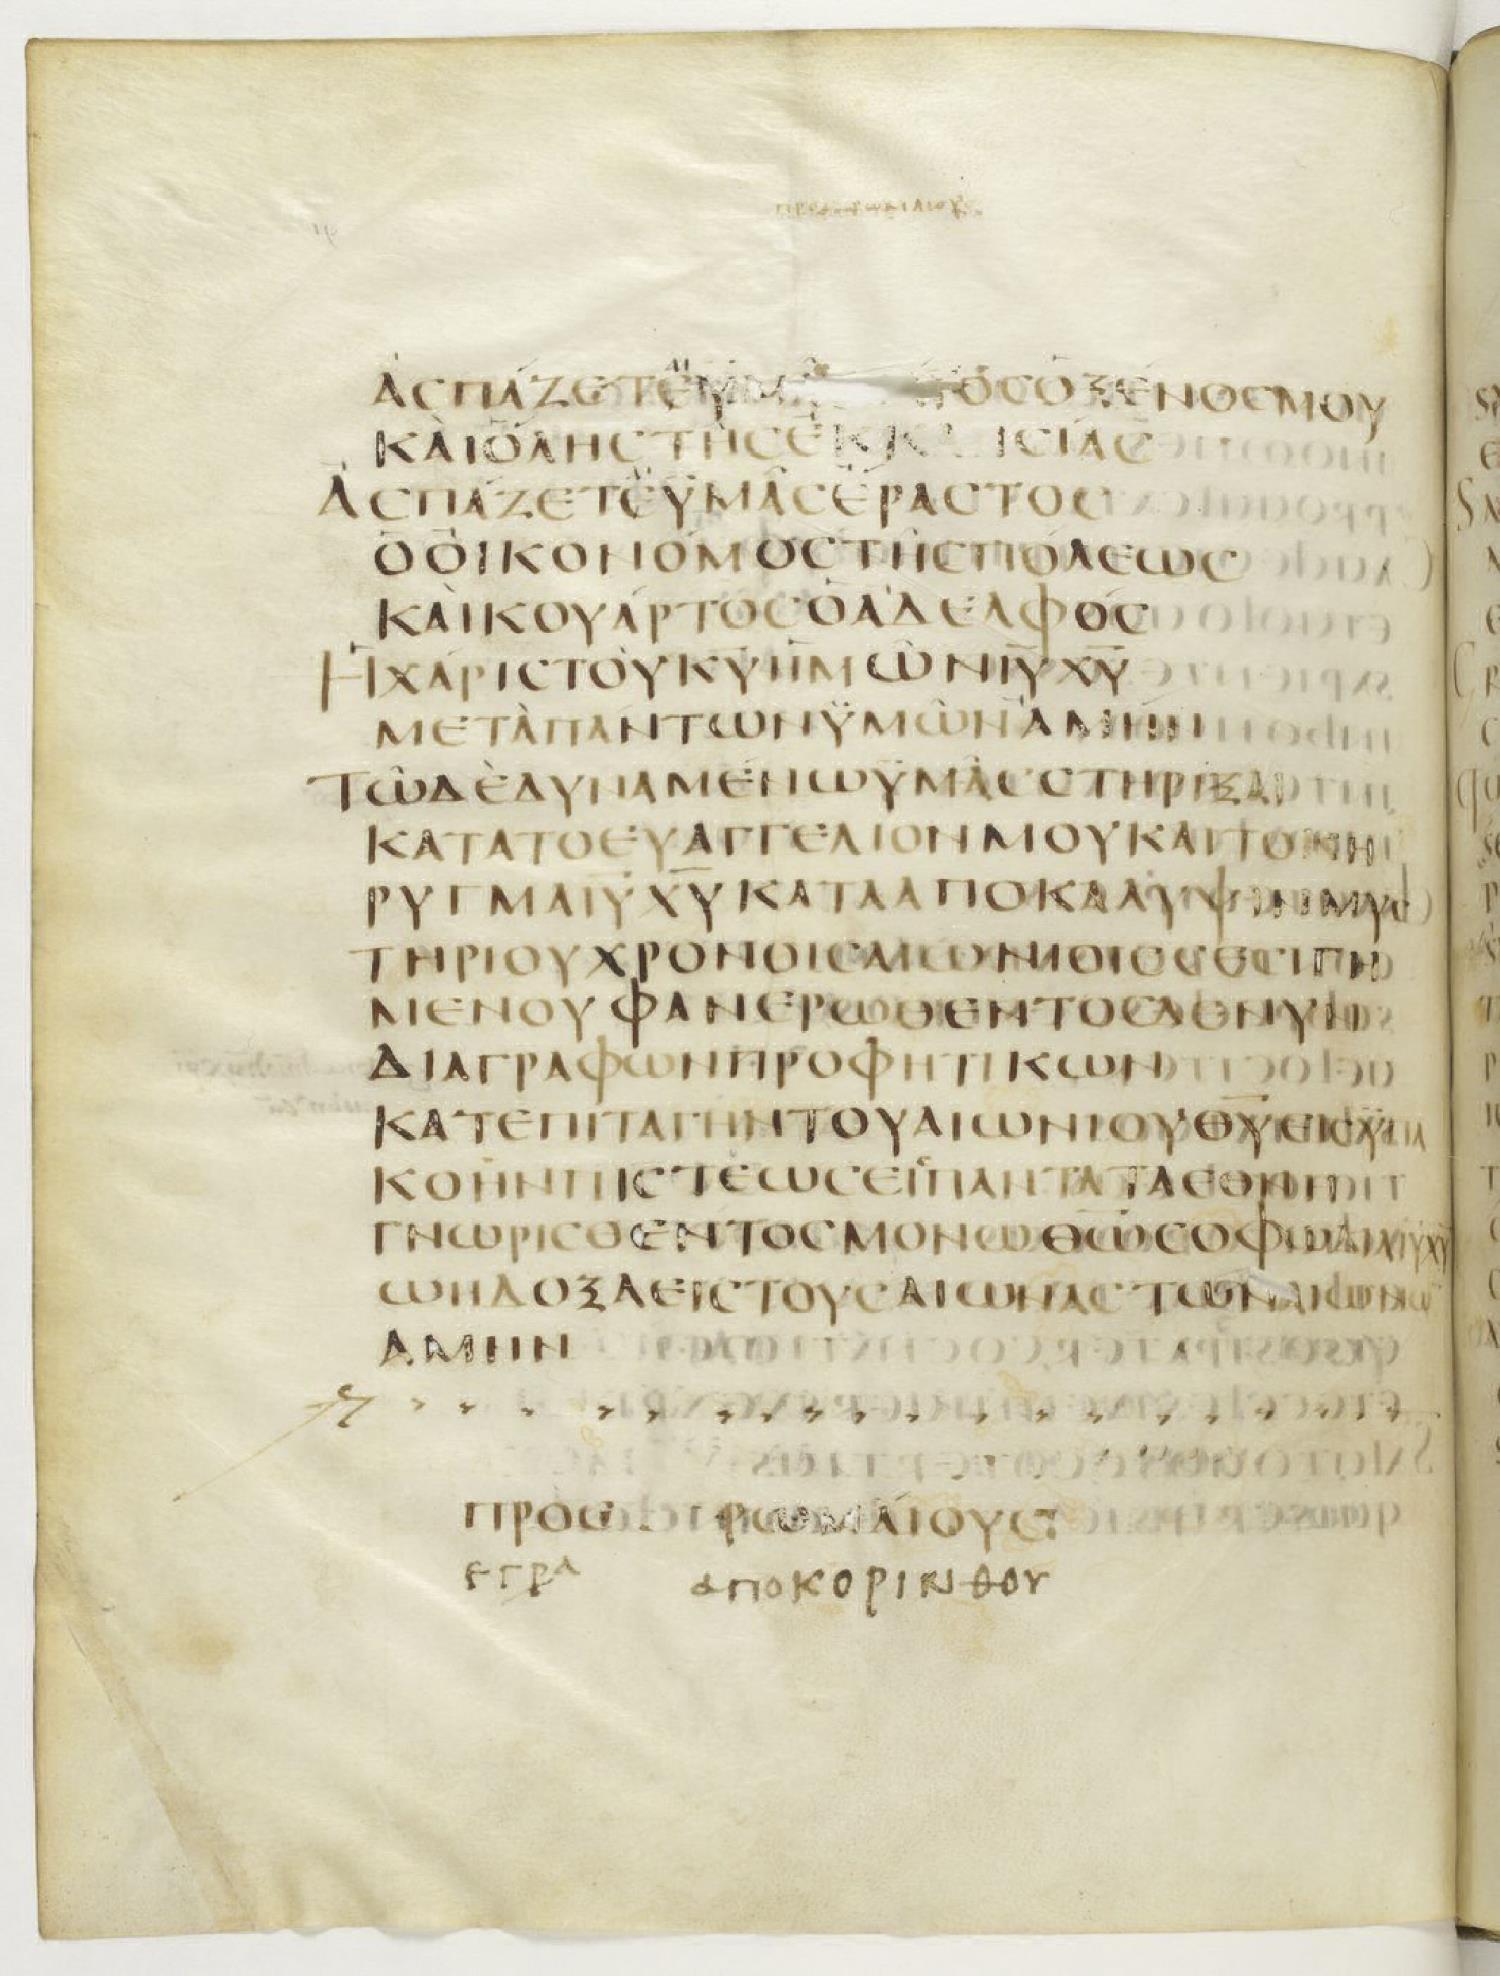 ΠΡΟΣ ΡΩΜΑΙΟΥΣ
ΑСΠΑΖΕΤΕΫΜ ΟСΟΞΕΝΟСΜΟΥ
ΚΑΙΟΛΗСΤΗСΕΚΚΛΗСΙΑС
ΑСΠΑΖΕΤΕΫΜΑСΕΡΑСΤΟС
ΟΟΙΚΟΝΟΜΟСΤΗСΠΟΛΕΩС
ΚΑΙΚΟΥΑΡΤΟСΟΑΔΕΛΦΟС
ΗΧΑΡΙСΤΟΥΚ̅Υ̅ΗΜΩΝΙ̅Υ̅Χ̅Υ̅
ΜΕΤΑΠΑΝΤΩΝΫΜΩΝΑΜΗΝ
ΤΩΔΕΔΥΝΑΜΕΝΩΫΜΑССΤΗΡΙΞΑΙ
ΚΑΤΑΤΟΕΥΑΓΓΕΛΙΟΝΜΟΥΚΑΙΤΟΚΗ
ΡΥΓΜΑΙ̅Υ̅Χ̅Υ̅ΚΑΤΑΑΠΟΚΑΛΥΨΙΝΜΥС
ΤΗΡΙΟΥΧΡΟΝΟΙСΑΙΩΝΙΟΙССΕСΙΓΗ
ΜΕΝΟΥΦΑΝΕΡΩΘΕΝΤΟСΔΕΝΥΝ
ΔΙΑΓΡΑΦΩΝΠΡΟΦΗΤΙΚΩΝ
ΚΑΤΕΠΙΤΑΓΗΝΤΟΥΑΙΩΝΙΟΥΘ̅Υ̅ΕΙСΫΠΑ
ΚΟΗΝΠΙСΤΕΩСΕΙСΠΑΝΤΑΤΑΕΘΝΗ
ΓΝΩΡΙСΘΕΝΤΟСΜΟΝΩΘ̅Ω̅СΟΦΩΔΙΑΙ̅Υ̅Χ̅Υ̅
ΩΗΔΟΞΑΕΙСΤΟΥСΑΙΩΝΑСΤΩΝΑΙΩΝΩ̅
ΑΜΗΝ
ΠΡΟС ΡΩΜΑΙΟΥС
ΕΓΡΑ ΑΠΟΚΟΡΙΝΘΟΥ